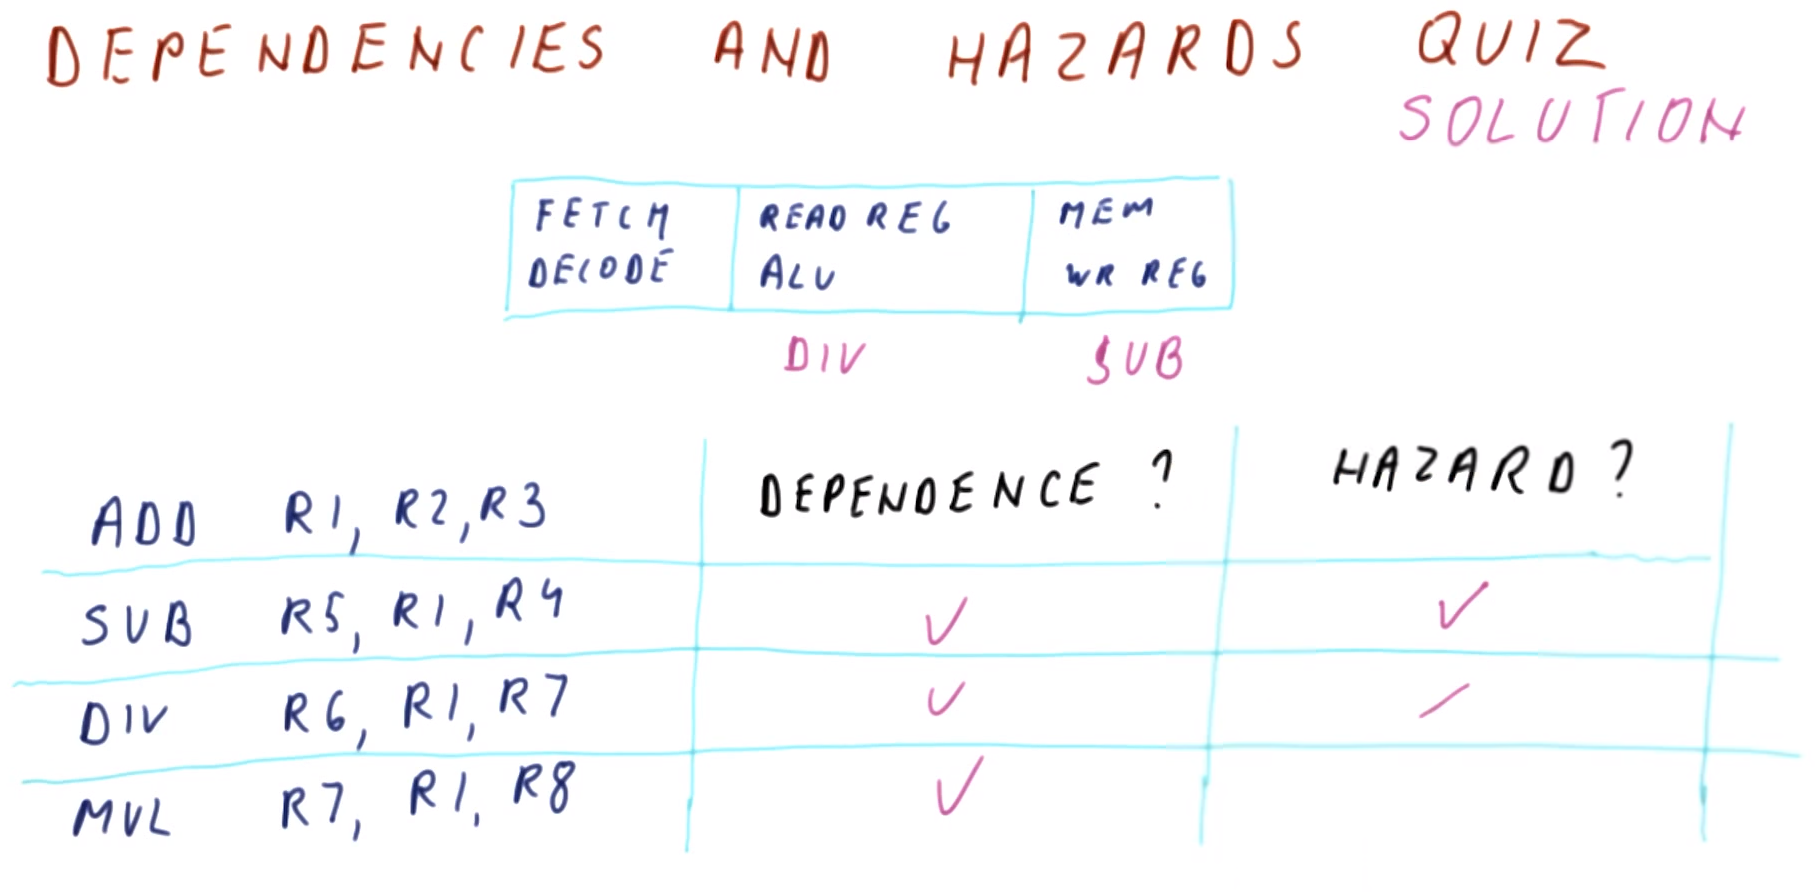 DEPENDENCIES AND HAZARDS QUIZ
SOLUTION
FETCH READ REG MEM
DECODE ALU WR REG
DIV SUB
DEPENDENCE ? HAZARD ?
ADD R1, R2, R3
SUB R5, R1, R4 ✓ ✓
DIV R6, R1, R7 ✓ /
MUL R7, R1, R8 ✓